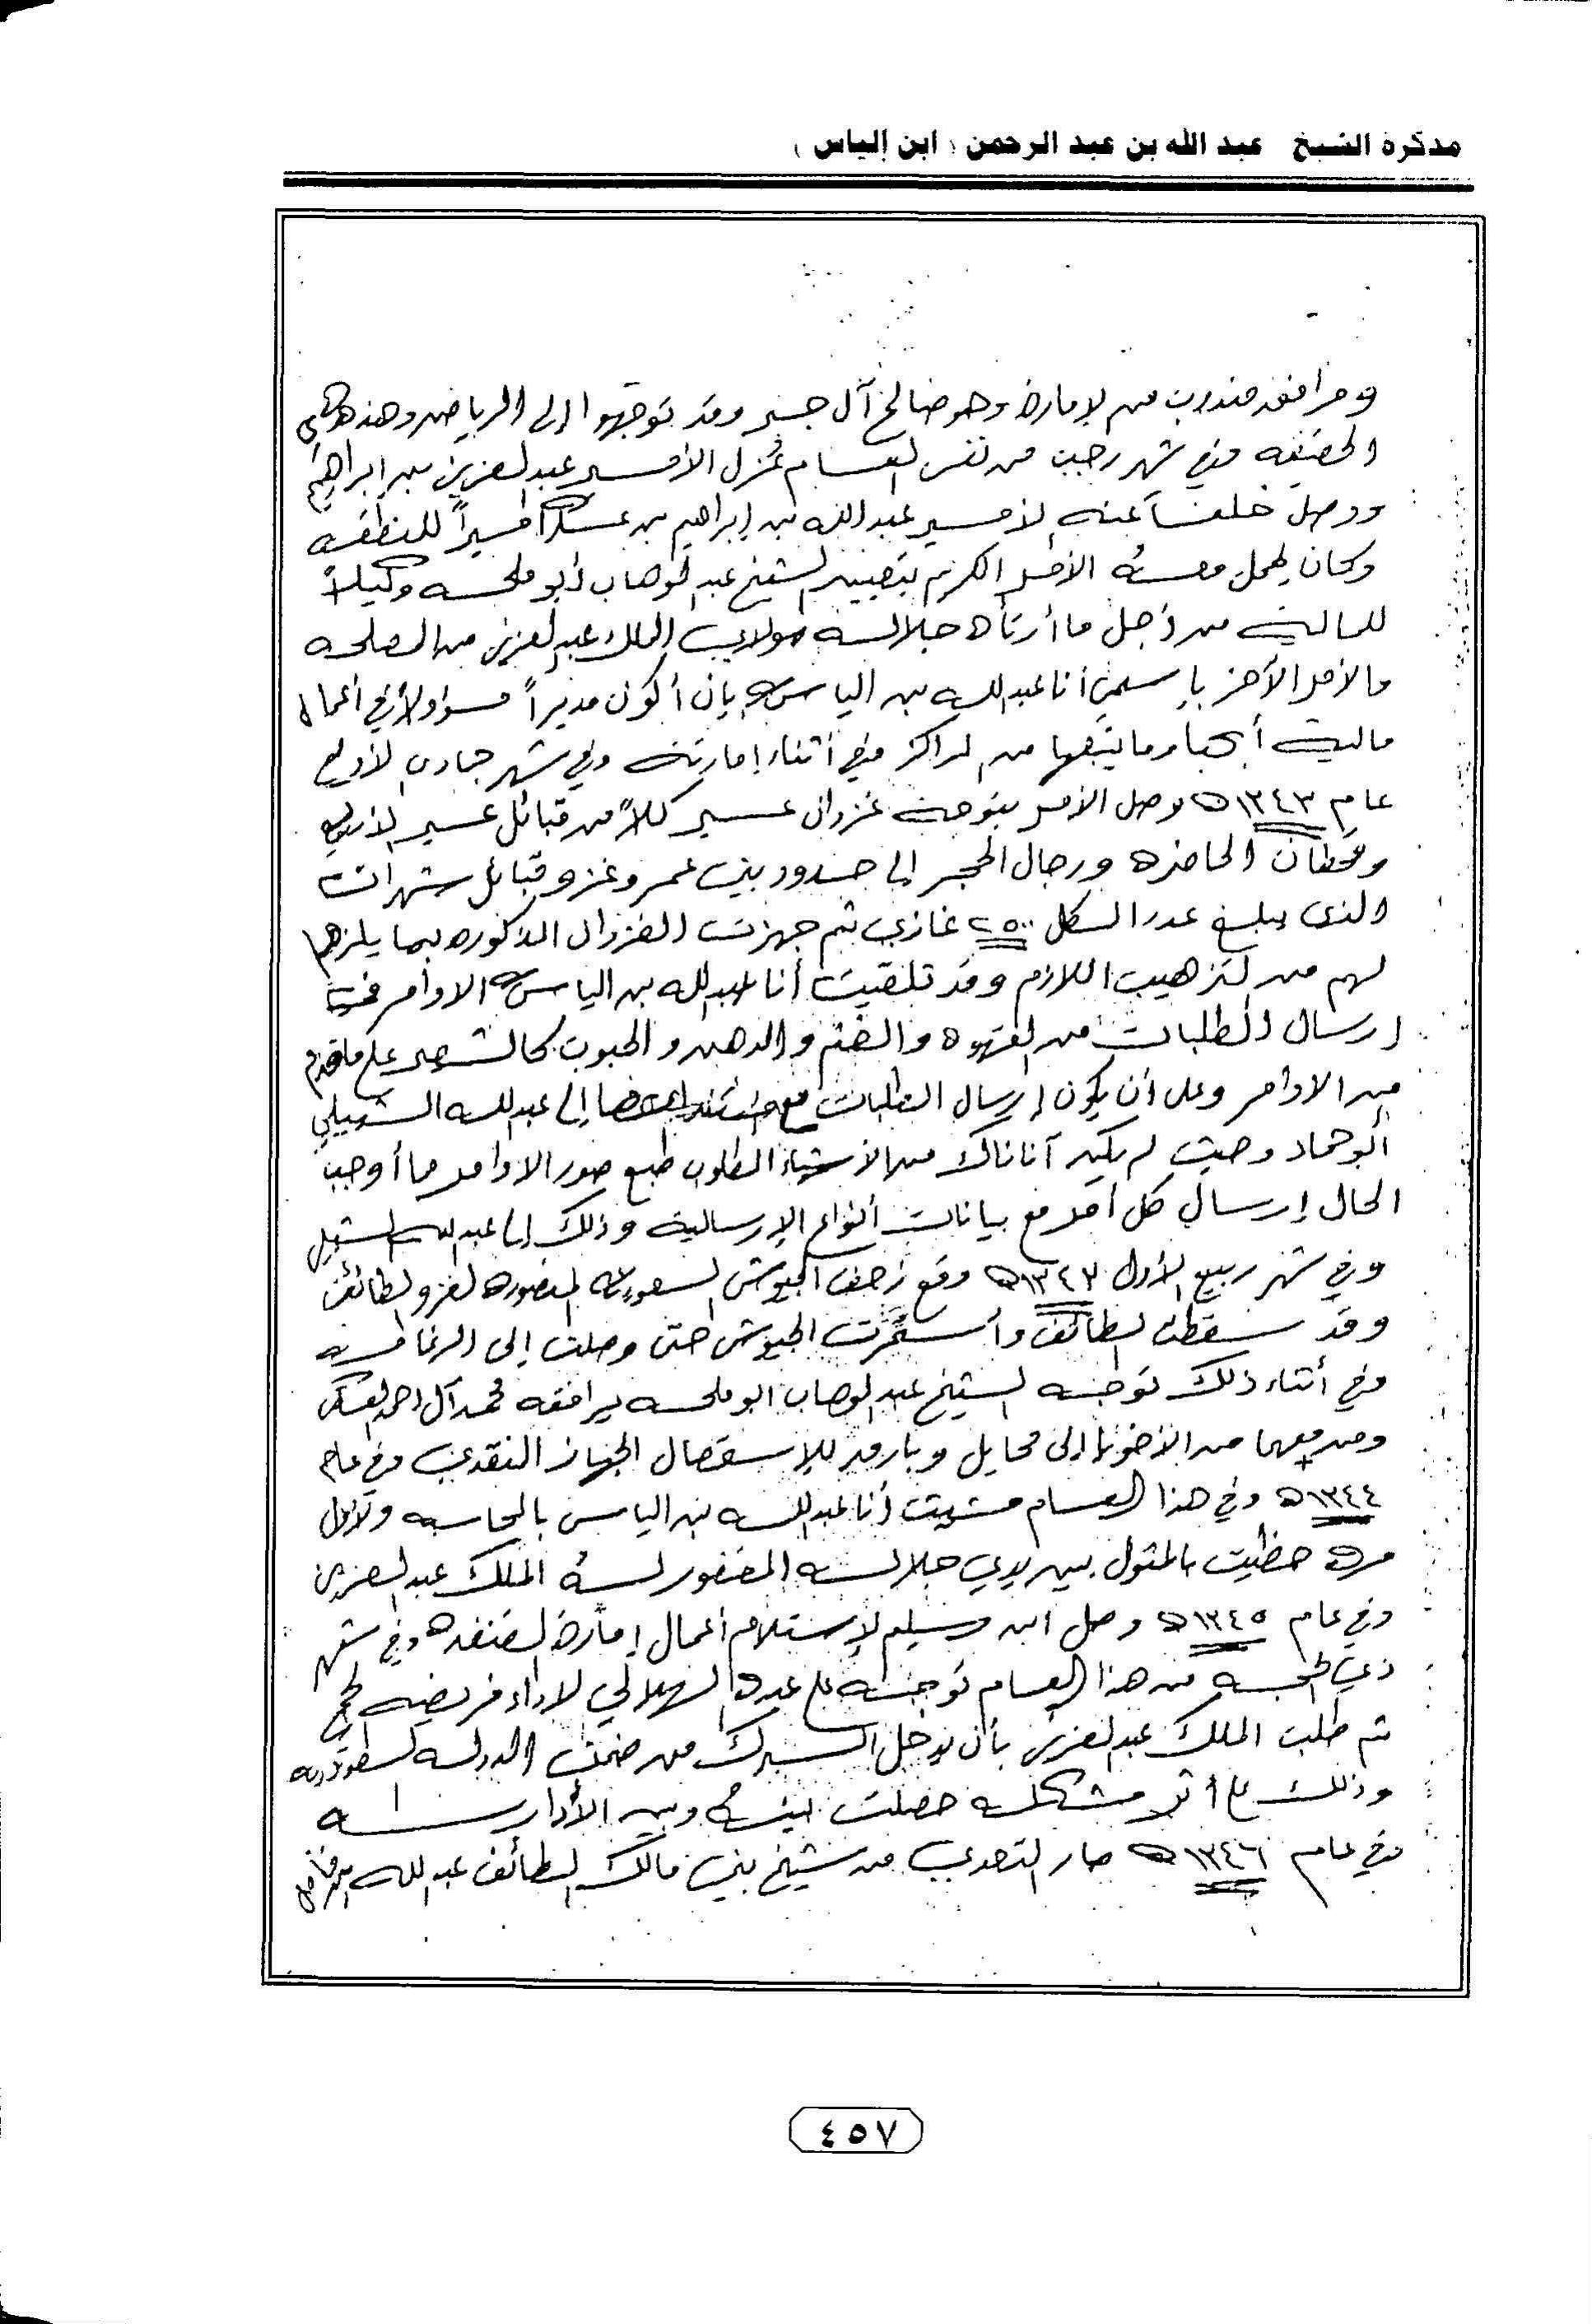 مذكرة الشيخ عبد الله بن عبد الرحمن ( ابن إلياس )
ومرافقه مندوب من الإمارة وهو صالح آل جبر وقد توجهوا إلى الرياض وهذه هي
الحقيقه وفي شهر رجب من نفس العام عُزل الأمير عبد العزيز بن إبراهيم
ووصل خلفاً عنه الأمير عبد الله بن إبراهيم بن عسكر أميراً للمنطقه
وكان يحمل معه الأمر الكريم بتعيين الشيخ عبد الوهاب أبو ملحه وكيلاً
للماليه من أجل ما أرتأه جلالة مولاي الملك عبد العزيز من المصلحه
والأمر الآخر بإسمي أنا عبد الله بن الياس بأن أكون مديراً مسؤولاً في أعمال
مالية أبها وما يتبعها من المراكز وفي أثناء إمارته وفي شهر جمادى الأولى
عام ١٣٤٣ه وصل الأمر بتوجه غزوان عسير كلاً من قبائل عسير
وقحطان الحاضره ورجال الحجر إلى حدود بني عمرو وغزو قبائل شهران
الذي يبلغ عدد الكل ٢٥٠٠ غازي ثم جهزت الغزوان المذكوره بما يلزم
لهم من التزهيب اللازم وقد تلقيت أنا عبد الله بن الياس الاوامر في
إرسال الطلبات من القهوه والغنم والدهن والحبوب كالشعير على ما تقدم
من الاوامر وعلى أن يكون إرسال الطلبات مع إلى عبد الله الشبيلي
أبو حماد وحيث لم يكن آناذاك من الأشياء المطلوب طبع صور الاوامر مما أوجب
الحال إرسال كل أمر مع بيانات أنواع الإرسالية وذلك إلى عبد الله الشبيلي
وفي شهر ربيع الأول ١٣٤٣ه وقع زحف الجيوش السعوديه المنصوره لغزو الطائف
وقد سقطت الطائف وأستمرت الجيوش حتى وصلت إلى الرغامه
وفي أثناء ذلك توجه الشيخ عبد الوهاب ابو ملحه يرافقه محمد آل احمد
ومن معهما من الأخويا إلى محايل وبارق للإستحصال الجهاز النقدي وفي عام
١٣٤٤ه وفي هذا العام مشيت أنا عبد الله بن الياس بالمحاسبه ولأول
مره حظيت بالمثول بين يدي جلالة المغفور له الملك عبد العزيز
وفي عام ١٣٤٥ه وصل ابن لإستلام أعمال إمارة القنفذه وفي شهر
ذي الحجه من هذا العام توجه علي عبده الهلالي لاداء فريضة الحج
ثم طلب الملك عبد العزيز بأن يدخل البرك من ضمن الدوله السعوديه
وذلك على أثر مشكله حصلت بينه وبين الأدارسه
وفي عام ١٣٤٦ه صار التعدي من شيخ بني مالك الطائف عبد الله بن فاضل
٤٥٧